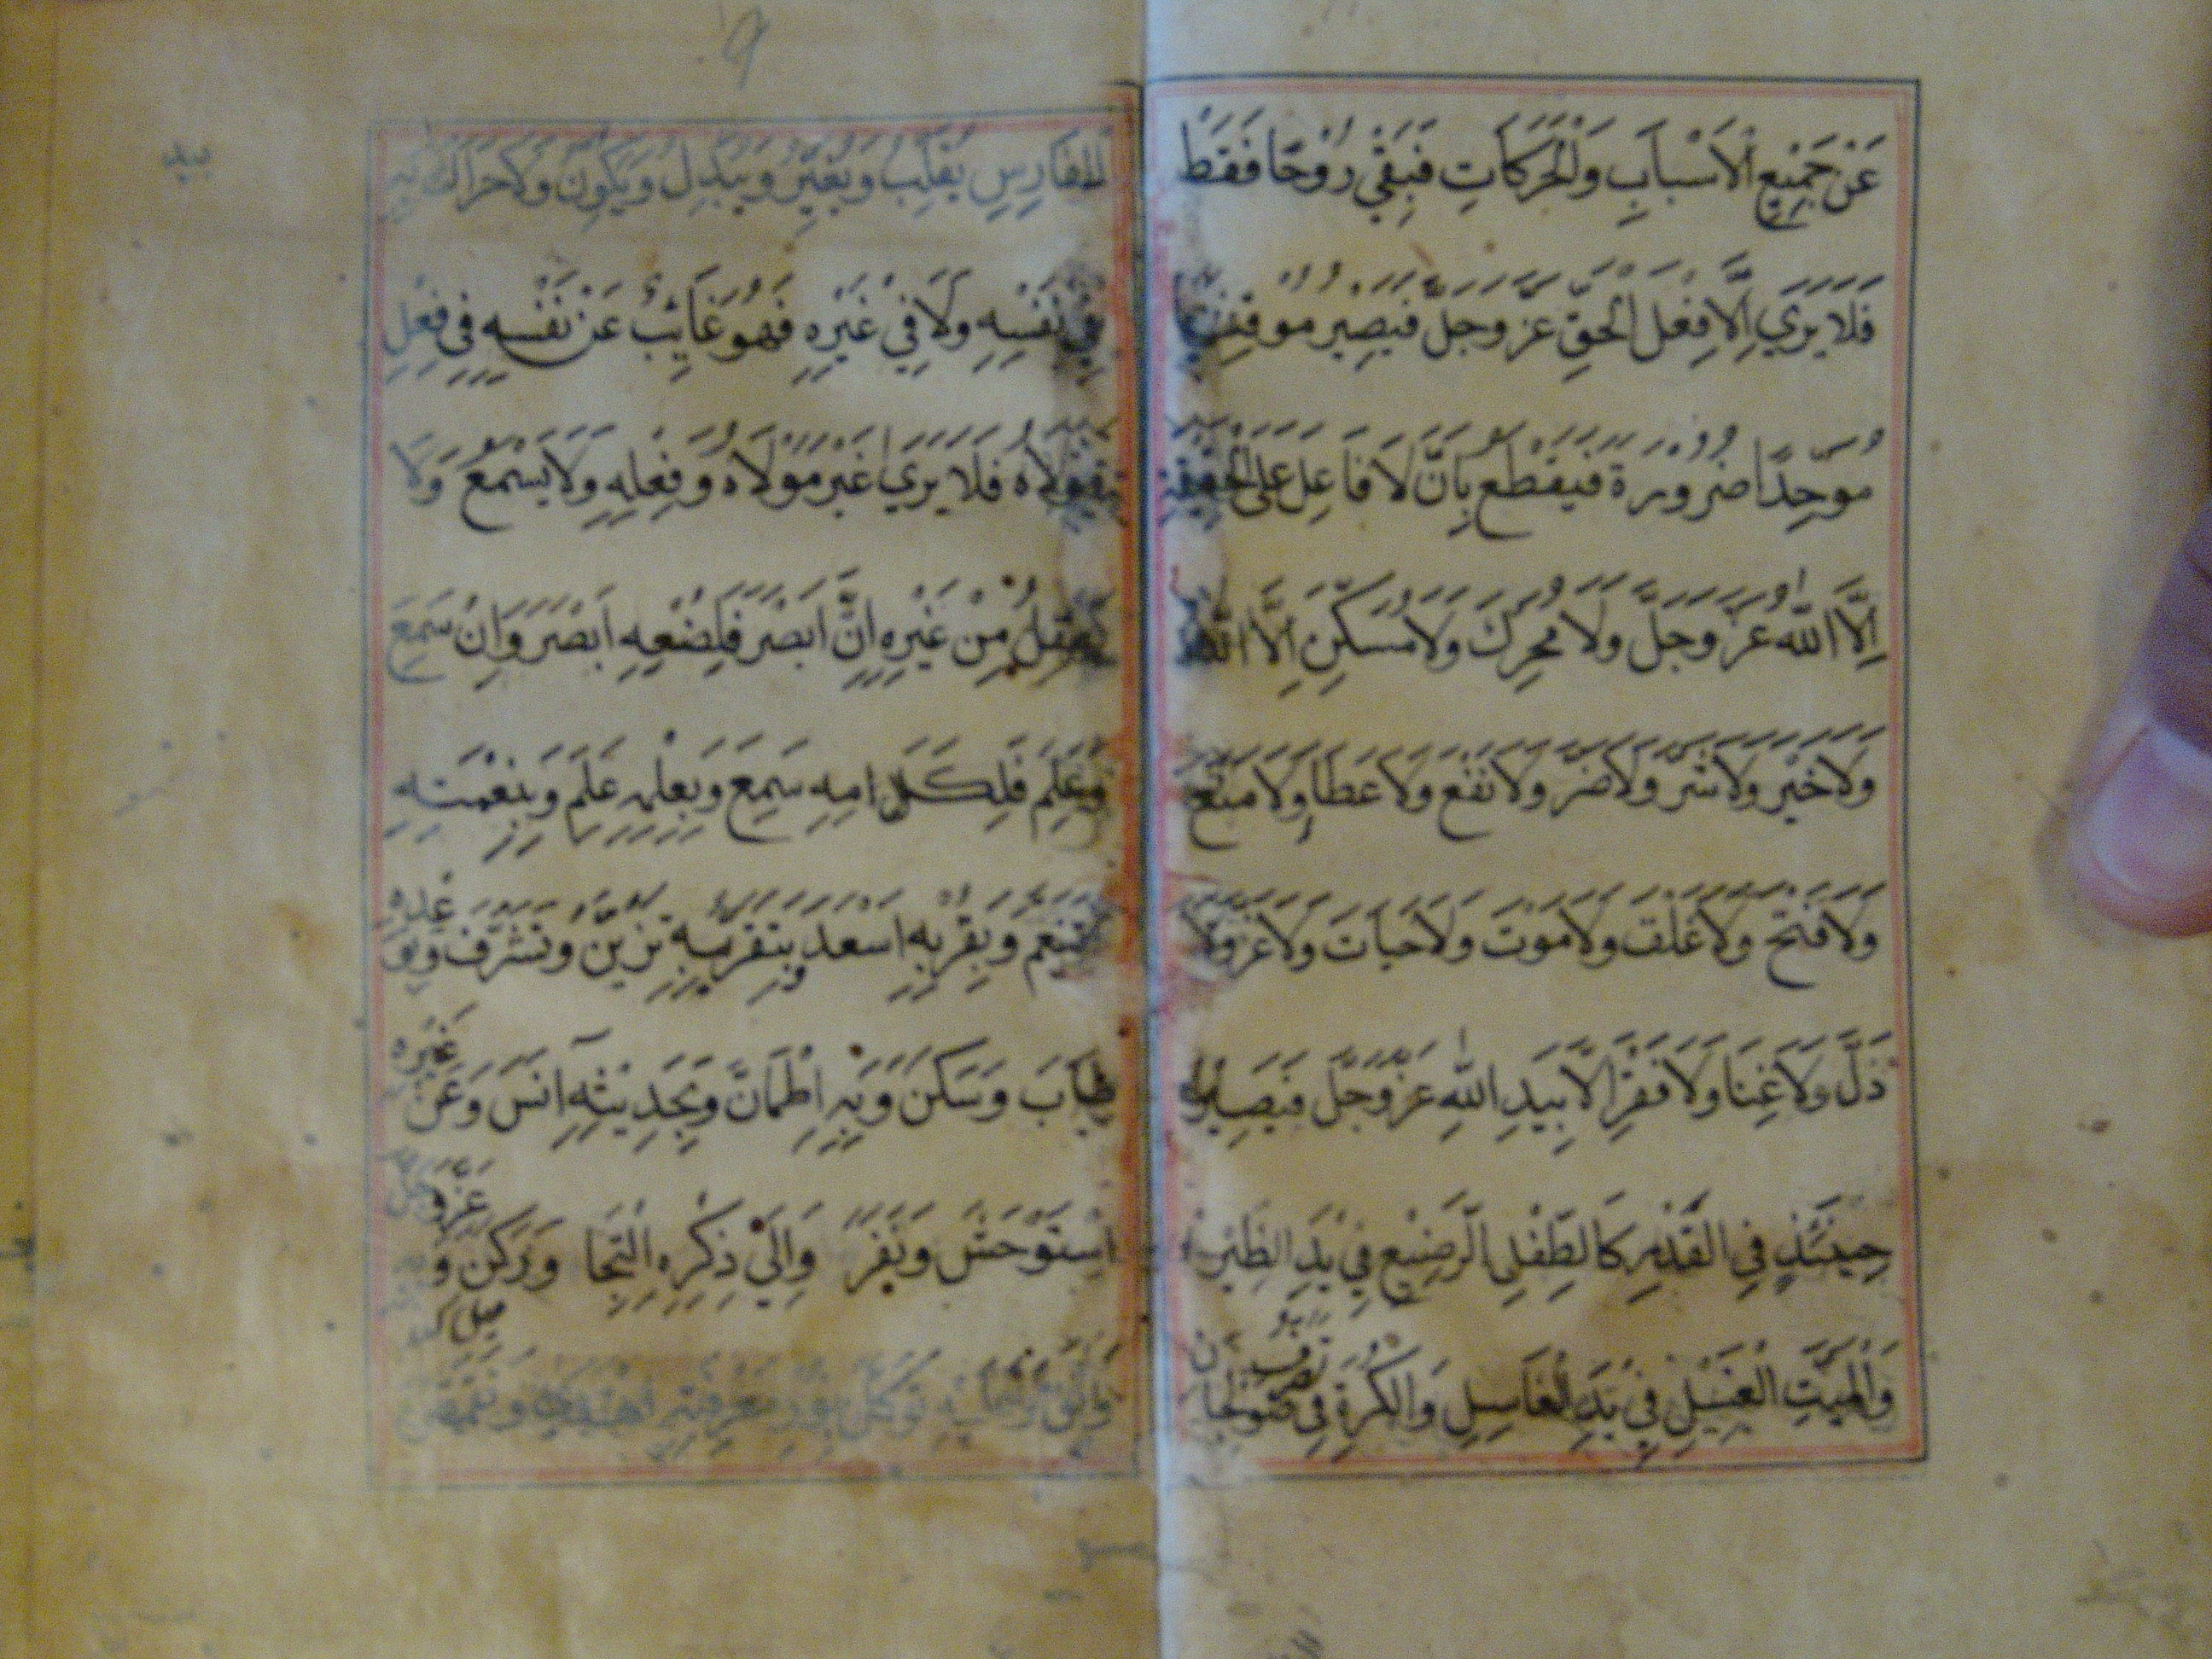 عَنْ جَمِيْعِ الْاَسْبَابِ وَالْحَرَكَاتِ فَبَقِيَ رُوْحًا فَقَطْ
فَلَا يَرَيِ اِلَّا فِعْلَ الْحَقِّ عَزَّ وَجَلَّ فَيَصِيْرُ مُوْقِنًا
مُوَحِّدًا ضَرُوْرَةً فَيَقْطَعُ بِاَنَّ لَا فَاعِلَ عَلَى الْحَقِيْقَةِ
اِلَّا اللّٰهُ عَزَّ وَجَلَّ وَلَا مُحَرِّكَ وَلَا مُسَكِّنَ اِلَّا اللّٰهُ
وَلَا خَيْرَ وَلَا شَرَّ وَلَا ضَرَّ وَلَا نَفْعَ وَلَا عَطَاءَ وَلَا مَنْعَ
وَلَا فَتْحَ وَلَا غَلْقَ وَلَا مَوْتَ وَلَا حَيَاتَ وَلَا عَزَّ وَلَا
ذَلَّ وَلَا غِنَا وَلَا فَقْرَ اِلَّا بِيَدِ اللّٰهِ عَزَّ وَجَلَّ فَيَصِيْرُ
حِيْنَئِذٍ فِي الْقَدْرِ كَالطِّفْلِ الرَّضِيْعِ فِيْ يَدِ الظِّئْرِ
وَالْمَيِّتِ الْغَسِيْلِ فِيْ يَدِ الْغَاسِلِ وَالْكُرَةِ فِيْ صَوْلَجَانِ
٩
بيد
الْفَارِسِ يُقَلَّبُ وَيُغَيَّرُ وَيُبَدَّلُ وَيُكَوَّنُ وَلَا حَرَاكَ بِهِ
فِيْ نَفْسِهِ وَلَا فِيْ غَيْرِهِ فَهُوَ غَايِبٌ عَنْ نَفْسِهِ فِيْ فِعْلِ
مَوْلَاهُ فَلَا يَرَيٰ غَيْرَ مَوْلَاهُ وَفِعْلِهِ وَلَا يَسْمَعُ وَلَا
يَعْقِلُ مِنْ غَيْرِهِ اِنْ اَبْصَرَ فَلِصُنْعِهِ اَبْصَرَ وَاِنْ سَمِعَ
وَعَلِمَ فَلِكَلَامِهِ سَمِعَ وَبِعِلْمِهِ عَلِمَ وَبِنِعْمَتِهِ
تَنَعَّمَ وَبِقُرْبِهِ اَسْعَدَ وَبِتَقْرِيْبِهِ تَزَيَّنَ وَتَشَرَّفَ وَبِوَعْدِهِ
طَابَ وَسَكَنَ وَبِهِ اطْمَاَنَّ وَبِحَدِيْثِهِ اَنِسَ وَعَنْ غَيْرِهِ
اسْتَوْحَشَ وَنَفَرَ وَاِلَيٰ ذِكْرِهِ الْتَجَا وَرَكَنَ وَ